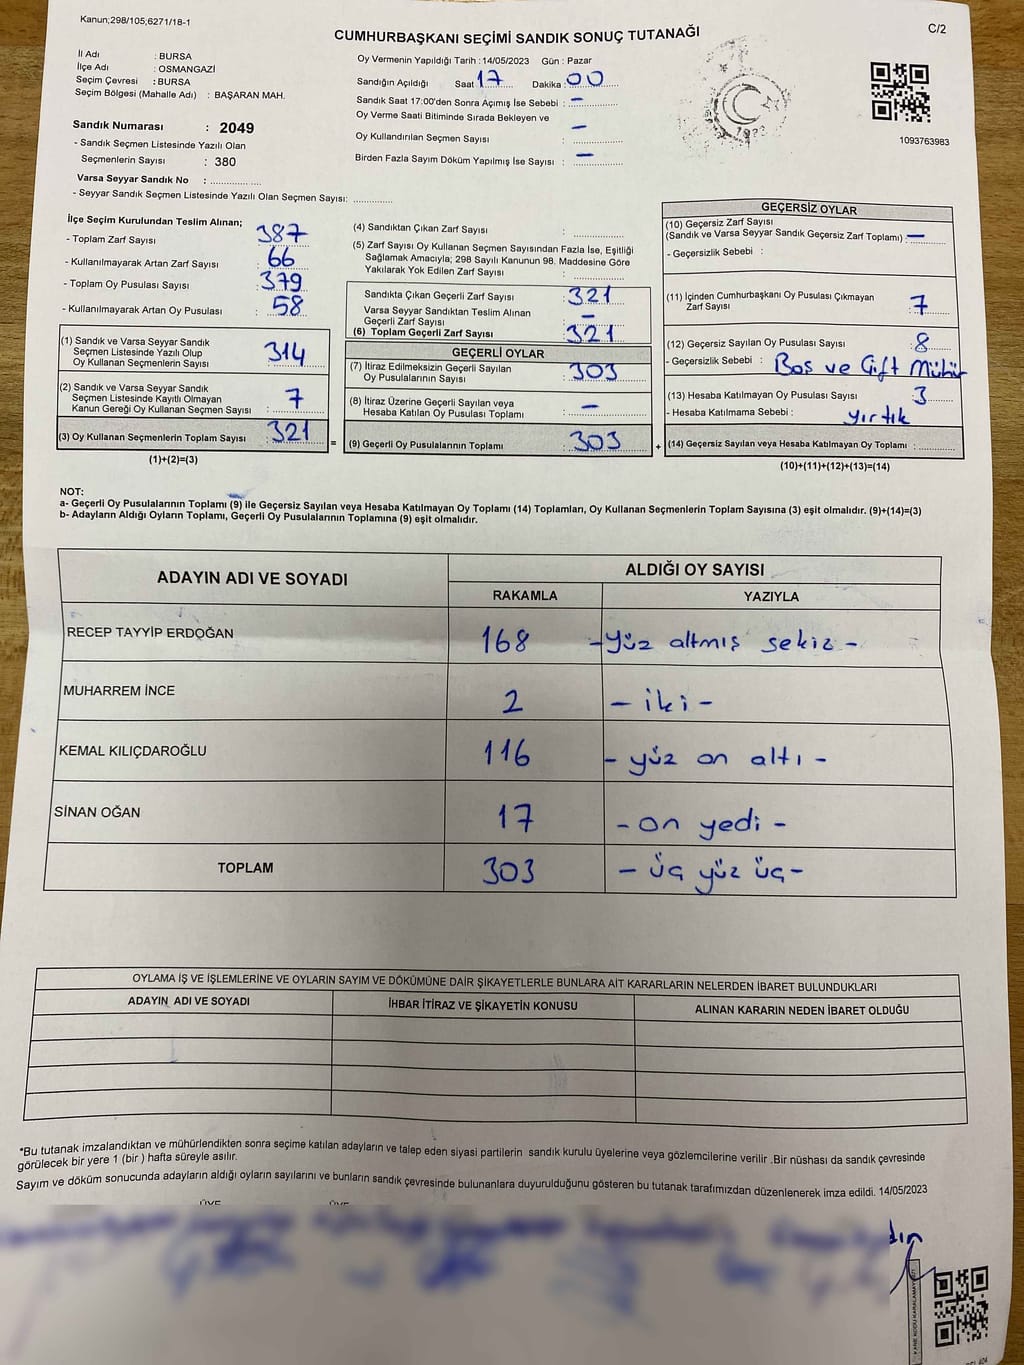 Kanun;298/105,6271/18-1
C/2
CUMHURBAŞKANI SEÇİMİ SANDIK SONUÇ TUTANAĞI
İl Adı : BURSA
İlçe Adı : OSMANGAZİ
Seçim Çevresi : BURSA
Seçim Bölgesi (Mahalle Adı) : BAŞARAN MAH.
Sandık Numarası : 2049
- Sandık Seçmen Listesinde Yazılı Olan
Seçmenlerin Sayısı : 380
Varsa Seyyar Sandık No : ..................
- Seyyar Sandık Seçmen Listesinde Yazılı Olan Seçmen Sayısı: ..............
Oy Vermenin Yapıldığı Tarih : 14/05/2023 Gün : Pazar
Sandığın Açıldığı Saat 17 Dakika : 00
Sandık Saat 17:00'den Sonra Açımış İse Sebebi : -
Oy Verme Saati Bitiminde Sırada Bekleyen ve
Oy Kullandırılan Seçmen Sayısı : -
Birden Fazla Sayım Döküm Yapılmış İse Sayısı : -
1923
1093763983
İlçe Seçim Kurulundan Teslim Alınan;
- Toplam Zarf Sayısı : 387
- Kullanılmayarak Artan Zarf Sayısı : 66
- Toplam Oy Pusulası Sayısı : 379
- Kullanılmayarak Artan Oy Pusulası : 58
(1) Sandık ve Varsa Seyyar Sandık
Seçmen Listesinde Yazılı Olup
Oy Kullanan Seçmenlerin Sayısı : 314
(2) Sandık ve Varsa Seyyar Sandık
Seçmen Listesinde Kayıtlı Olmayan
Kanun Gereği Oy Kullanan Seçmen Sayısı : 7
(3) Oy Kullanan Seçmenlerin Toplam Sayısı : 321
(1)+(2)=(3)
=
(4) Sandıktan Çıkan Zarf Sayısı : ..............
(5) Zarf Sayısı Oy Kullanan Seçmen Sayısından Fazla İse, Eşitliği
Sağlamak Amacıyla; 298 Sayılı Kanunun 98. Maddesine Göre
Yakılarak Yok Edilen Zarf Sayısı : ..............
Sandıkta Çıkan Geçerli Zarf Sayısı : 321
Varsa Seyyar Sandıktan Teslim Alınan
Geçerli Zarf Sayısı : -
(6) Toplam Geçerli Zarf Sayısı : 321
GEÇERLİ OYLAR
(7) İtiraz Edilmeksizin Geçerli Sayılan
Oy Pusulalarının Sayısı : 303
(8) İtiraz Üzerine Geçerli Sayılan veya
Hesaba Katılan Oy Pusulası Toplamı : -
(9) Geçerli Oy Pusulalarının Toplamı : 303
+
GEÇERSİZ OYLAR
(10) Geçersiz Zarf Sayısı
(Sandık ve Varsa Seyyar Sandık Geçersiz Zarf Toplamı) : -
- Geçersizlik Sebebi :
(11) İçinden Cumhurbaşkanı Oy Pusulası Çıkmayan
Zarf Sayısı : 7
(12) Geçersiz Sayılan Oy Pusulası Sayısı : 8
- Geçersizlik Sebebi : Bos ve Çift Mühür
(13) Hesaba Katılmayan Oy Pusulası Sayısı : 3
- Hesaba Katılmama Sebebi : yırtık
(14) Geçersiz Sayılan veya Hesaba Katılmayan Oy Toplamı : ..............
(10)+(11)+(12)+(13)=(14)
NOT:
a- Geçerli Oy Pusulalarının Toplamı (9) ile Geçersiz Sayılan veya Hesaba Katılmayan Oy Toplamı (14) Toplamları, Oy Kullanan Seçmenlerin Toplam Sayısına (3) eşit olmalıdır. (9)+(14)=(3)
b- Adayların Aldığı Oyların Toplamı, Geçerli Oy Pusulalarının Toplamına (9) eşit olmalıdır.
ADAYIN ADI VE SOYADI
ALDIĞI OY SAYISI
RAKAMLA YAZIYLA
RECEP TAYYİP ERDOĞAN 168 -yüz altmış sekiz-
MUHARREM İNCE 2 - iki -
KEMAL KILIÇDAROĞLU 116 - yüz on altı -
SİNAN OĞAN 17 - on yedi -
TOPLAM 303 - üç yüz üç-
OYLAMA İŞ VE İŞLEMLERİNE VE OYLARIN SAYIM VE DÖKÜMÜNE DAİR ŞİKAYETLERLE BUNLARA AİT KARARLARIN NELERDEN İBARET BULUNDUKLARI
ADAYIN ADI VE SOYADI İHBAR İTİRAZ VE ŞİKAYETİN KONUSU ALINAN KARARIN NEDEN İBARET OLDUĞU
*Bu tutanak imzalandıktan ve mühürlendikten sonra seçime katılan adayların ve talep eden siyasi partilerin sandık kurulu üyelerine veya gözlemcilerine verilir .Bir nüshası da sandık çevresinde
görülecek bir yere 1 (bir ) hafta süreyle asılır.
Sayım ve döküm sonucunda adayların aldığı oyların sayılarını ve bunların sandık çevresinde bulunanlara duyurulduğunu gösteren bu tutanak tarafımızdan düzenlenerek imza edildi. 14/05/2023
ÜYE ÜYE